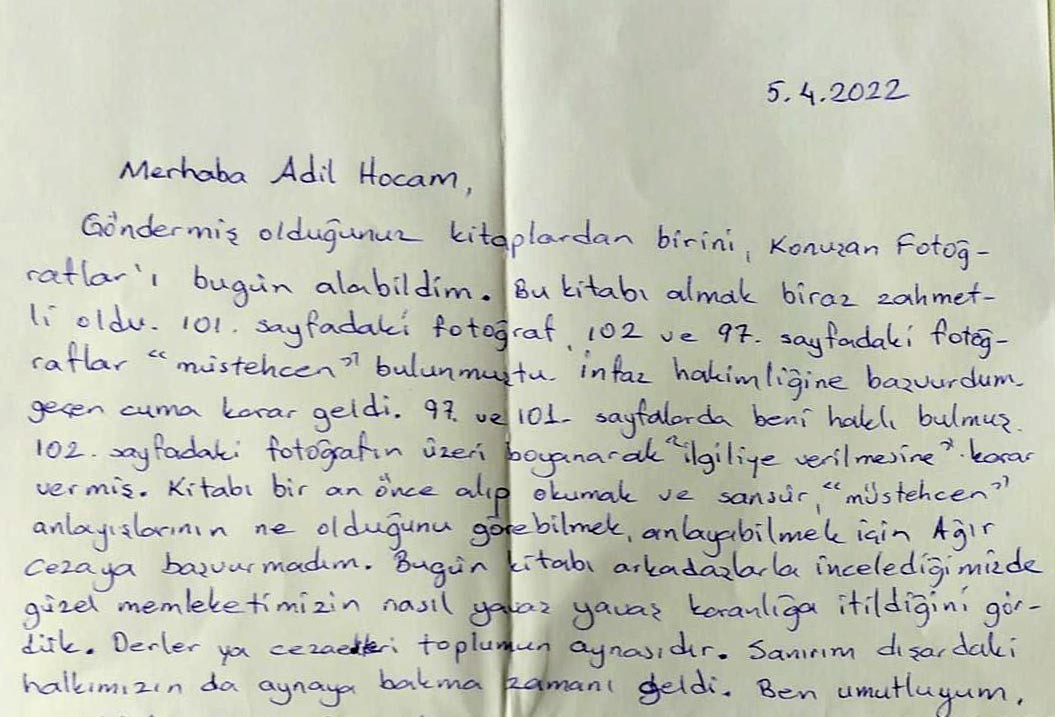 5.4.2022
Merhaba Adil Hocam,
Göndermiş olduğunuz kitaplardan birini, Konuşan Fotoğ-
raflar'ı bugün alabildim. Bu kitabı almak biraz zahmet-
li oldu. 101. sayfadaki fotoğraf, 102 ve 97. sayfadaki fotoğ-
raflar "müstehcen" bulunmuştu. infaz hakimliğine başvurdum.
geçen cuma karar geldi. 97. ve 101. sayfalarda beni haklı bulmuş.
102. sayfadaki fotoğrafın üzeri boyanarak "ilgiliye verilmesine" karar
vermiş. Kitabı bir an önce alıp okumak ve sansür, "müstehcen"
anlayışlarının ne olduğunu görebilmek, anlayabilmek için Ağır
Cezaya başvurmadım. Bugün kitabı arkadaşlarla incelediğimizde
güzel memleketimizin nasıl yavaş yavaş karanlığa itildiğini gör-
dük. Derler ya cezaevleri toplumun aynasıdır. Sanırım dışardaki
halkımızın da aynaya bakma zamanı geldi. Ben umutluyum.